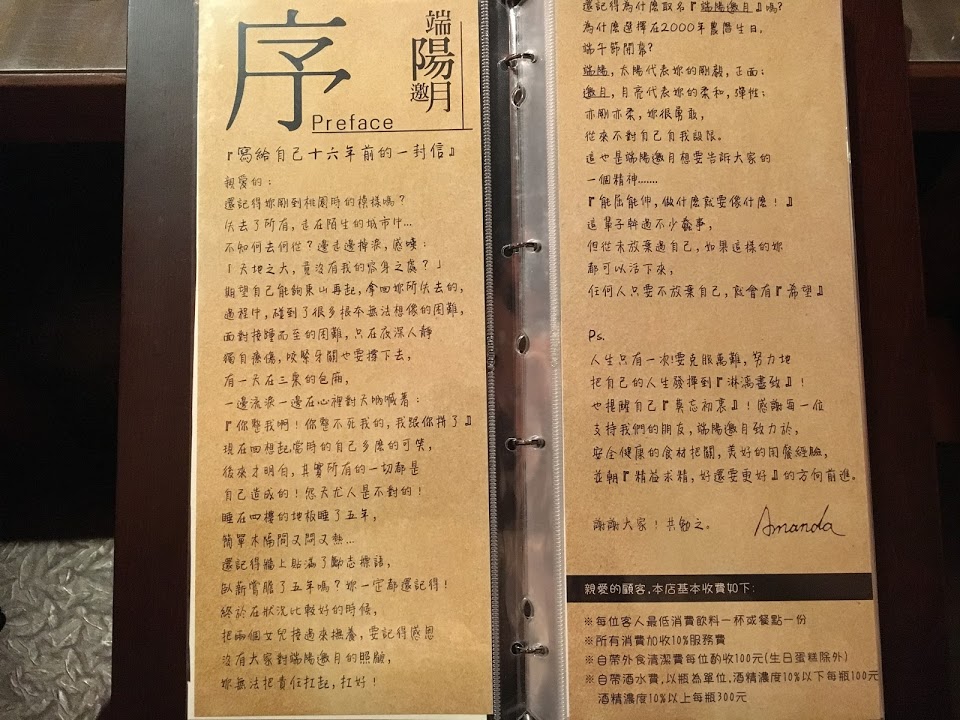 序
端陽邀月
Preface
『寫給自己十六年前的一封信』
親愛的：
還記得妳剛到桃園時的模樣嗎？
失去了所有，走在陌生的城市中...
不知何去何從？邊走邊掉淚，感嘆：
「天地之大，竟沒有我的容身之處？」
期望自己能夠東山再起，拿回妳所失去的，
過程中，碰到了很多根本無法想像的困難，
面對接踵而至的困難，只在夜深人靜
獨自療傷，咬緊牙關也要撐下去，
有一天在三槳的包廂，
一邊流淚一邊在心裡對天吶喊著：
『你整我啊！你整不死我的，我跟你拼了』
現在回想起當時的自己多麼的可笑，
後來才明白，其實所有的一切都是
自己造成的！怨天尤人是不對的！
睡在四樓的地板睡了五年，
簡單木隔間又悶又熱...
還記得牆上貼滿了勵志標語，
臥薪嘗膽了五年嗎？妳一定都還記得！
終於在狀況比較好的時候，
把兩個女兒接過來撫養，要記得感恩
沒有大家對端陽邀月的照顧，
妳無法把責任扛起，扛好！
還記得為什麼取名『端陽邀月』嗎？
為什麼選擇在2000年農曆生日，
端午節開幕？
端陽，太陽代表妳的剛毅，正面；
邀月，月亮代表妳的柔和，彈性；
亦剛亦柔，妳很勇敢，
從來不對自己自我設限。
這也是端陽邀月想要告訴大家的
一個精神.......
『能屈能伸，做什麼就要像什麼！』
這輩子幹過不少蠢事，
但從未放棄過自己，如果這樣的妳
都可以活下來，
任何人只要不放棄自己，就會有『希望』
Ps.
人生只有一次!要克服萬難，努力地
把自己的人生發揮到『淋漓盡致』！
也提醒自己『莫忘初衷』！感謝每一位
支持我們的朋友，端陽邀月致力於，
安全健康的食材把關，美好的用餐經驗，
並朝『精益求精，好還要更好』的方向前進。
謝謝大家！共勉之。 Amanda
親愛的顧客,本店基本收費如下:
※每位客人最低消費飲料一杯或餐點一份
※所有消費加收10%服務費
※自帶外食清潔費每位酌收100元(生日蛋糕除外)
※自帶酒水費,以瓶為單位,酒精濃度10%以下每瓶100元
酒精濃度10%以上每瓶300元